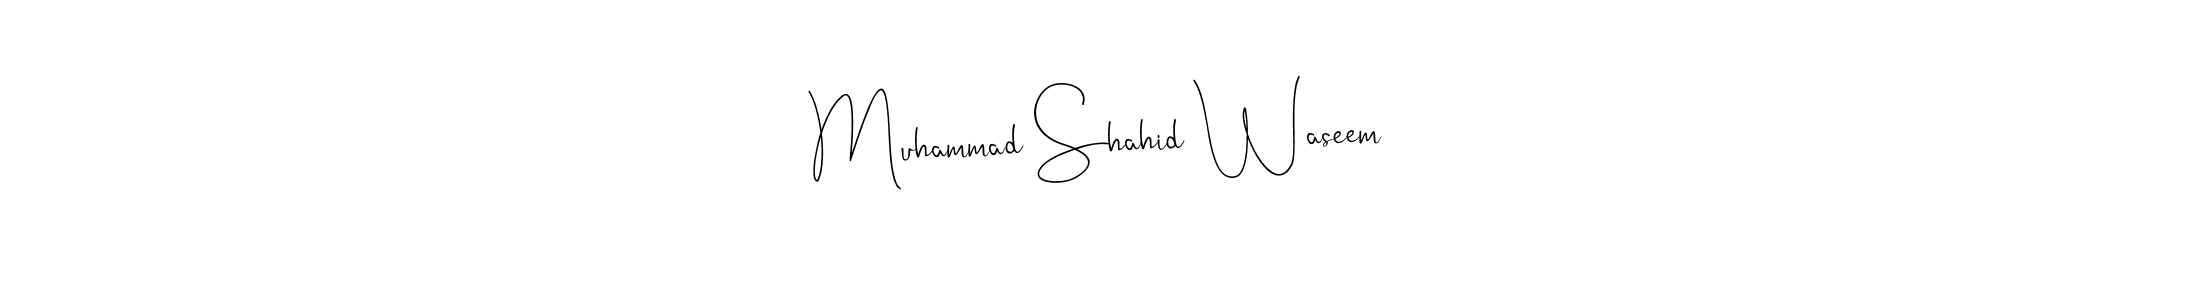 Muhammad Shahid Waseem